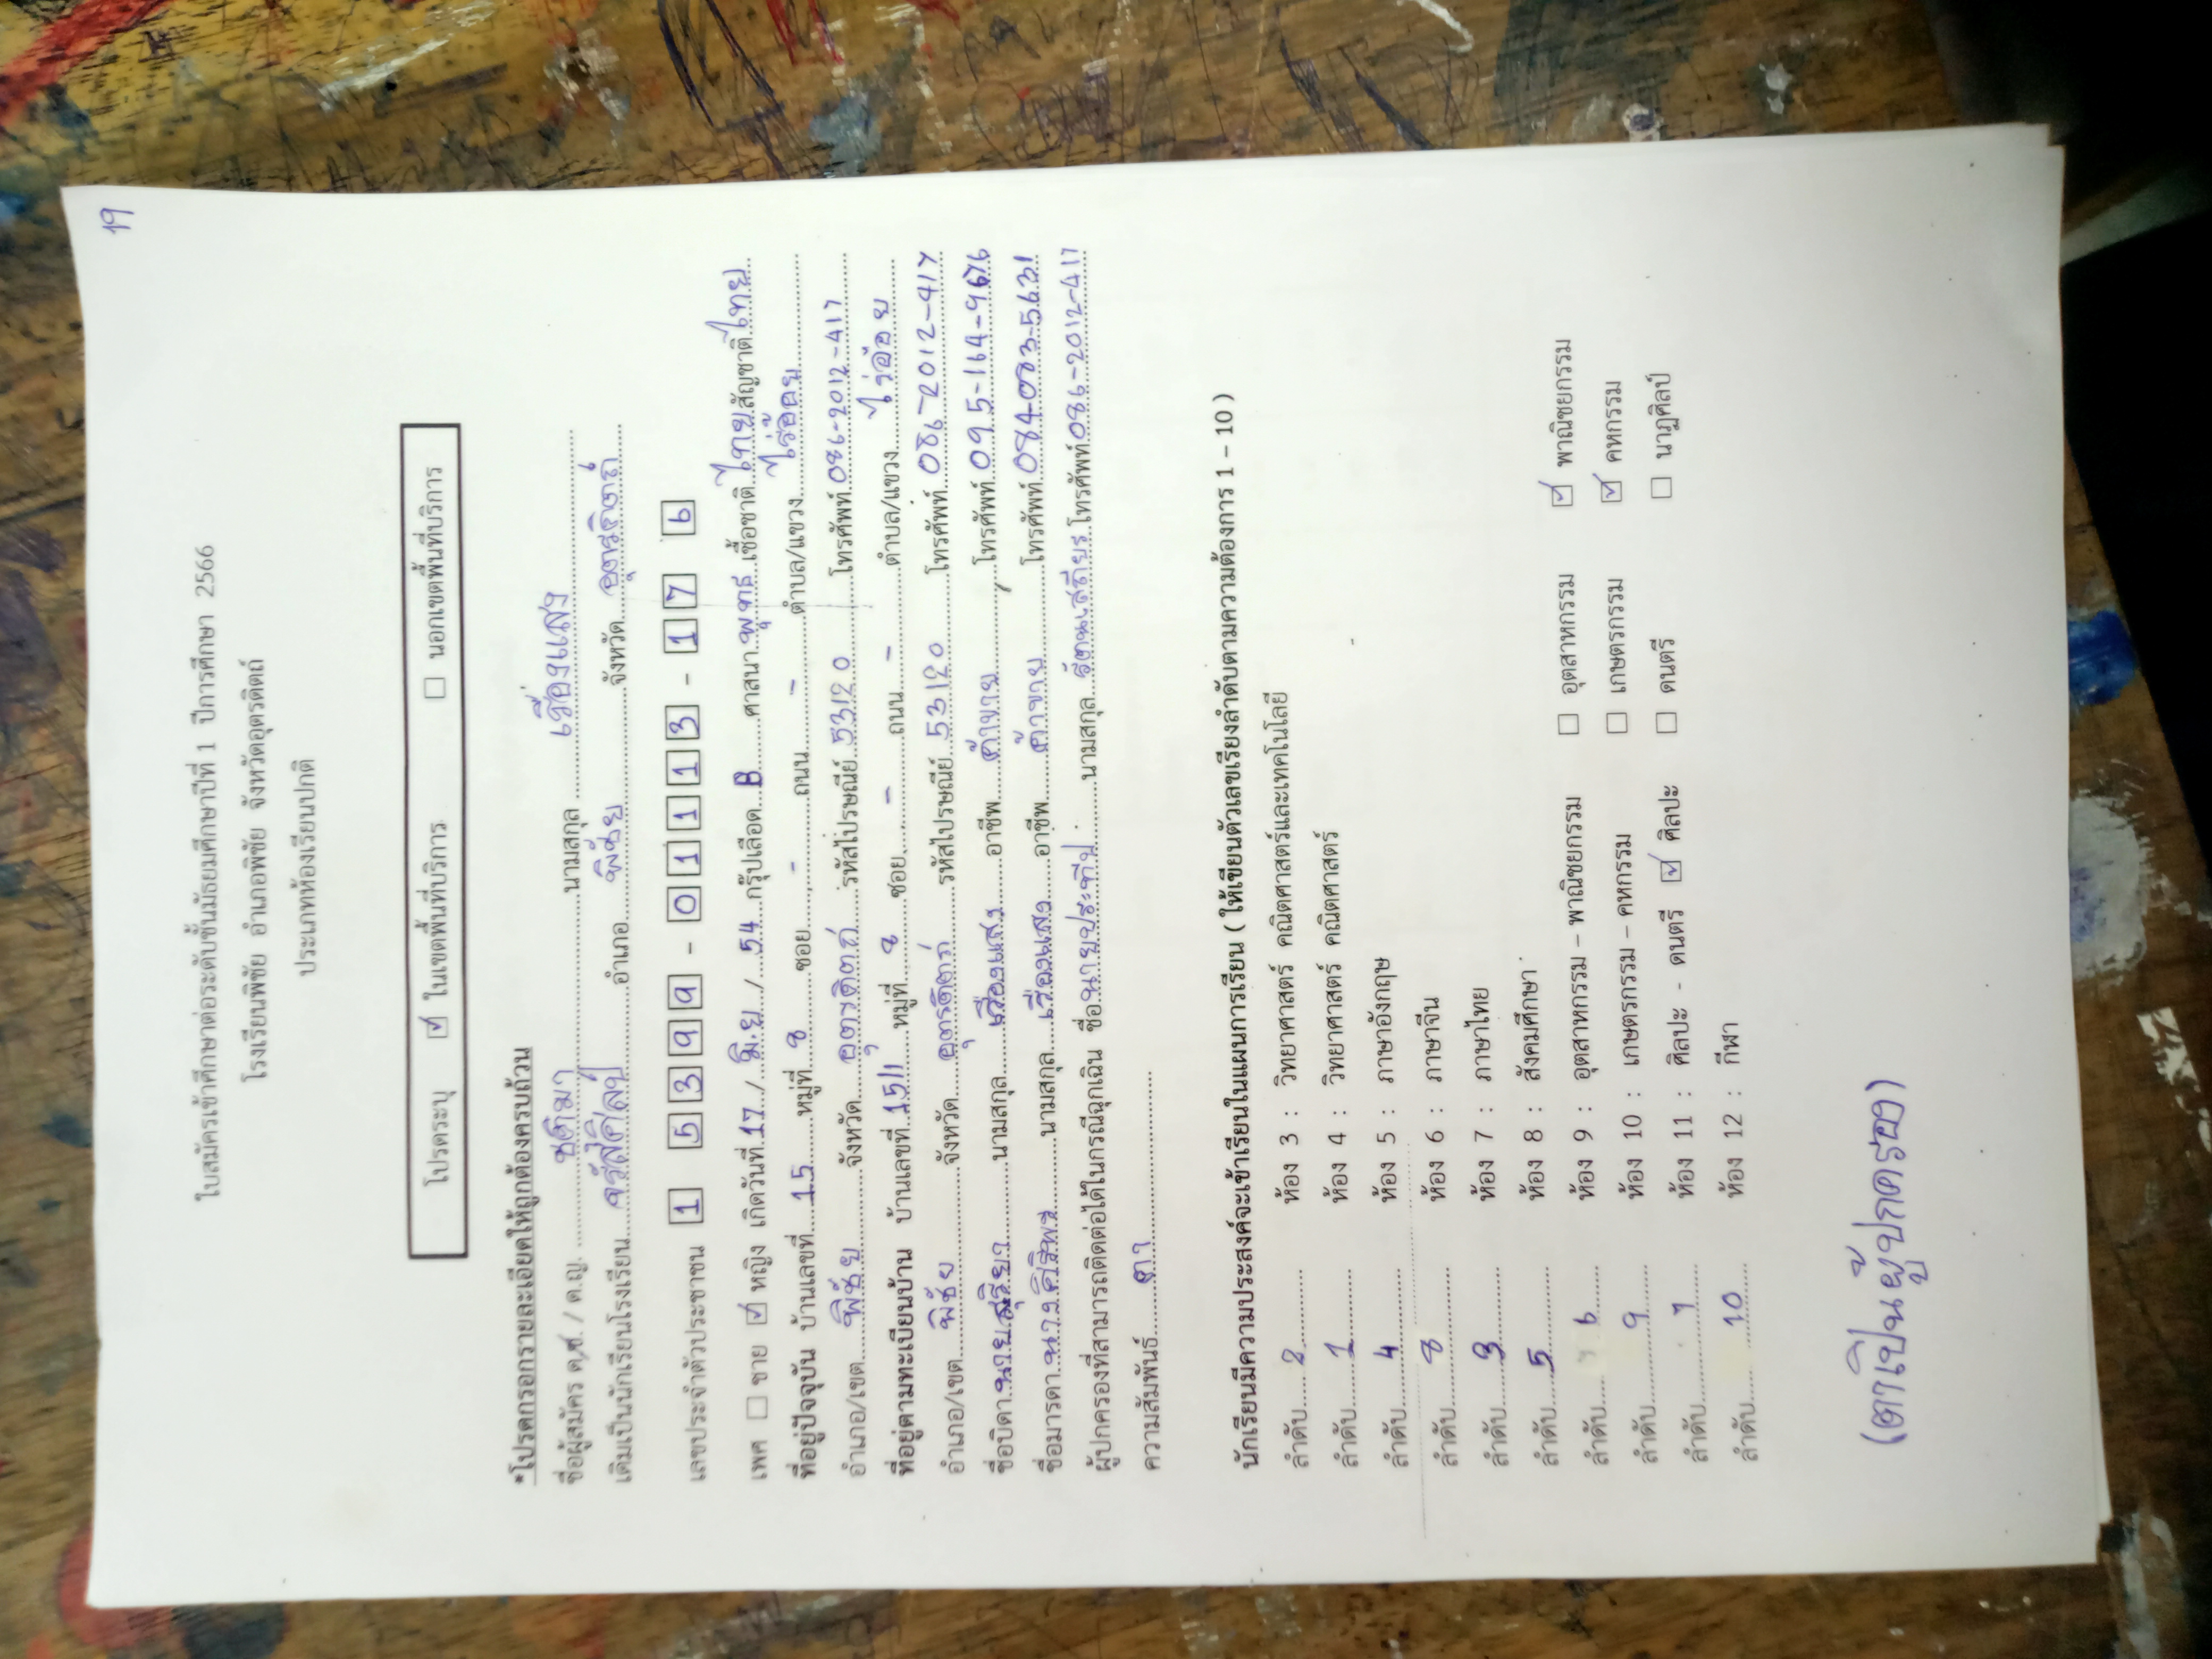 19
ใบสมัครเข้าศึกษาต่อระดับชั้นมัธยมศึกษาปีที่ 1 ปีการศึกษา 2566
โรงเรียนพิชัย อำเภอพิชัย จังหวัดอุตรดิตถ์
ประเภทห้องเรียนปกติ
โปรดระบุ ☑ ในเขตพื้นที่บริการ ☐ นอกเขตพื้นที่บริการ
*โปรดกรอกรายละเอียดให้ถูกต้องครบถ้วน
ชื่อผู้สมัคร ด.ช. / ด.ญ. ชุติมา นามสกุล เรืองแสง
เดิมเป็นนักเรียนโรงเรียน จรัสศิลป์ อำเภอ พิชัย จังหวัด อุตรดิตถ์
เลขประจำตัวประชาชน 1 5399 - 01113 - 17 6
เพศ ☐ ชาย ☑ หญิง เกิดวันที่ 17 / มิ.ย / 54 กรุ๊ปเลือด B ศาสนา พุทธ เชื้อชาติ ไทย สัญชาติ ไทย
ที่อยู่ปัจจุบัน บ้านเลขที่ 15 หมู่ที่ 8 ซอย - ถนน - ตำบล/แขวง ไร่อ้อย
อำเภอ/เขต พิชัย จังหวัด อุตรดิตถ์ รหัสไปรษณีย์ 53120 โทรศัพท์ 086-2012-417
ที่อยู่ตามทะเบียนบ้าน บ้านเลขที่ 15/1 หมู่ที่ 8 ซอย - ถนน - ตำบล/แขวง ไร่อ้อย
อำเภอ/เขต พิชัย จังหวัด อุตรดิตถ์ รหัสไปรษณีย์ 53120 โทรศัพท์ 086-2012-417
ชื่อบิดา นายสุริยา นามสกุล เรืองแสง อาชีพ ค้าขาย โทรศัพท์ 095-164-9676
ชื่อมารดา นางศิริพร นามสกุล เรืองแสง อาชีพ ค้าขาย โทรศัพท์ 084-083-5631
ผู้ปกครองที่สามารถติดต่อได้ในกรณีฉุกเฉิน ชื่อ นายประทีป นามสกุล รัตนเสถียร โทรศัพท์ 086-2012-417
ความสัมพันธ์ ตา
นักเรียนมีความประสงค์จะเข้าเรียนในแผนการเรียน ( ให้เขียนตัวเลขเรียงลำดับตามความต้องการ 1 – 10 )
ลำดับ 2 ห้อง 3 : วิทยาศาสตร์ คณิตศาสตร์และเทคโนโลยี
ลำดับ 1 ห้อง 4 : วิทยาศาสตร์ คณิตศาสตร์
ลำดับ 4 ห้อง 5 : ภาษาอังกฤษ
ลำดับ 8 ห้อง 6 : ภาษาจีน
ลำดับ 3 ห้อง 7 : ภาษาไทย
ลำดับ 5 ห้อง 8 : สังคมศึกษา
ลำดับ 6 ห้อง 9 : อุตสาหกรรม – พาณิชยกรรม ☐ อุตสาหกรรม ☑ พาณิชยกรรม
ลำดับ 9 ห้อง 10 : เกษตรกรรม – คหกรรม ☐ เกษตรกรรม ☑ คหกรรม
ลำดับ 7 ห้อง 11 : ศิลปะ - ดนตรี ☑ ศิลปะ ☐ ดนตรี ☐ นาฏศิลป์
ลำดับ 10 ห้อง 12 : กีฬา
(ตาเป็นผู้ปกครอง)